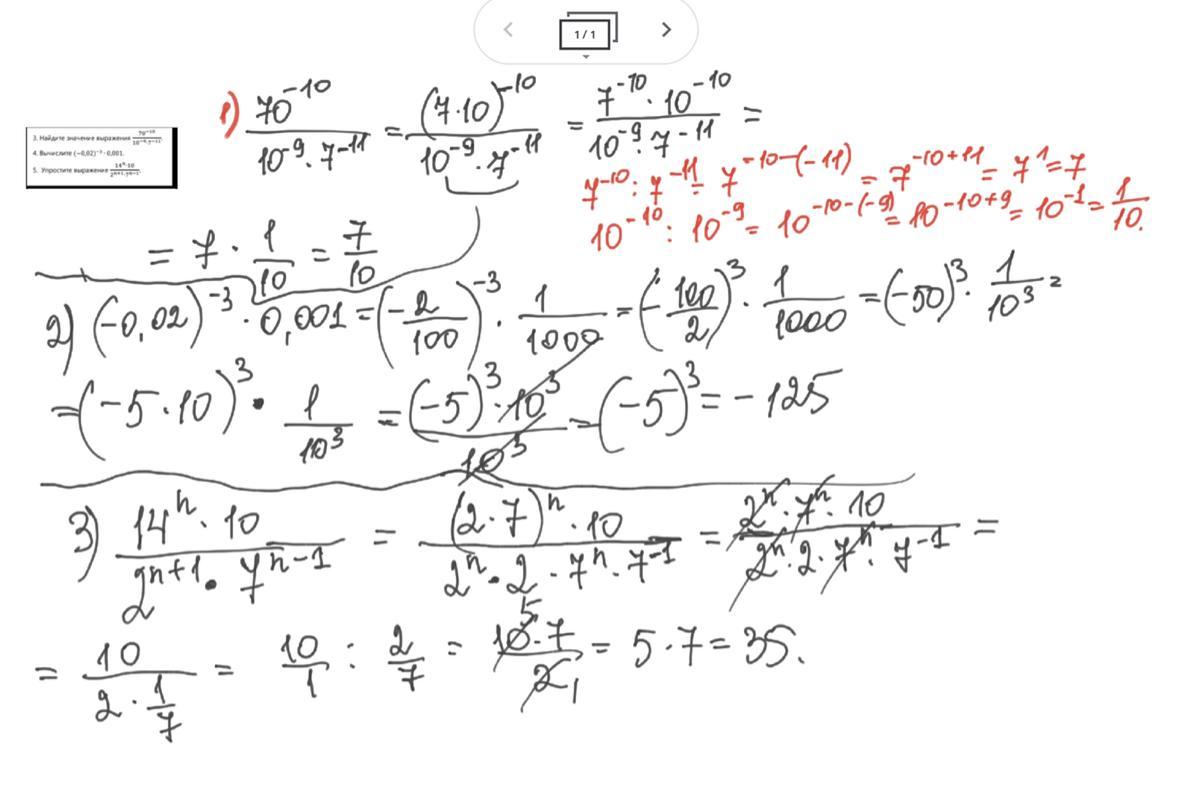 1 / 1
3. Найдите значение выражения 70⁻¹⁰/(10⁻⁹·7⁻¹¹).
4. Вычислите (−0,02)⁻³ · 0,001.
5. Упростите выражение 14ⁿ·10/(2ⁿ⁺¹·7ⁿ⁻¹).
1) 70⁻¹⁰/(10⁻⁹·7⁻¹¹) = (7·10)⁻¹⁰/(10⁻⁹·7⁻¹¹) = 7⁻¹⁰·10⁻¹⁰/(10⁻⁹·7⁻¹¹) =
7⁻¹⁰ : 7⁻¹¹ = 7⁻¹⁰⁻⁽⁻¹¹⁾ = 7⁻¹⁰⁺¹¹ = 7¹ = 7
10⁻¹⁰ : 10⁻⁹ = 10⁻¹⁰⁻⁽⁻⁹⁾ = 10⁻¹⁰⁺⁹ = 10⁻¹ = 1/10.
= 7 · 1/10 = 7/10
2) (−0,02)⁻³ · 0,001 = (−2/100)⁻³ · 1/1000 = (−100/2)³ · 1/1000 = (−50)³ · 1/10³ =
= (−5·10)³ · 1/10³ = (−5)³·10³/10³ = (−5)³ = −125
3) 14ⁿ·10/(2ⁿ⁺¹·7ⁿ⁻¹) = (2·7)ⁿ·10/(2ⁿ·2·7ⁿ·7⁻¹) = 2ⁿ·7ⁿ·10/(2ⁿ·2·7ⁿ·7⁻¹) =
= 10/(2·1/7) = 10/1 : 2/7 = 10 5·7/2 1 = 5·7 = 35.